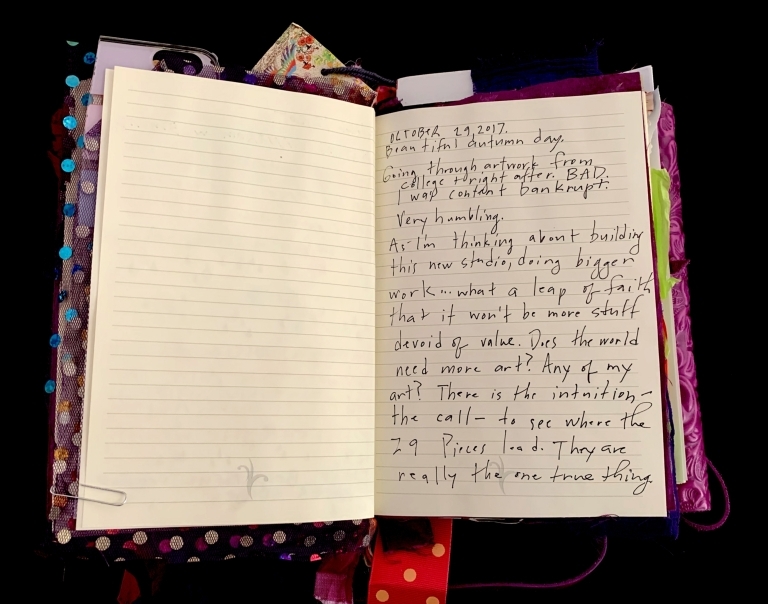 OCTOBER 29, 2017.
Beautiful autumn day.
Going through artwork from
college + right after. BAD.
I was content bankrupt.
Very humbling.
As I'm thinking about building
this new studio, doing bigger
work... what a leap of faith
that it won't be more stuff
devoid of value. Does the world
need more art? Any of my
art? There is the intuition -
the call - to see where the
29 Pieces lead. They are
really the one true thing